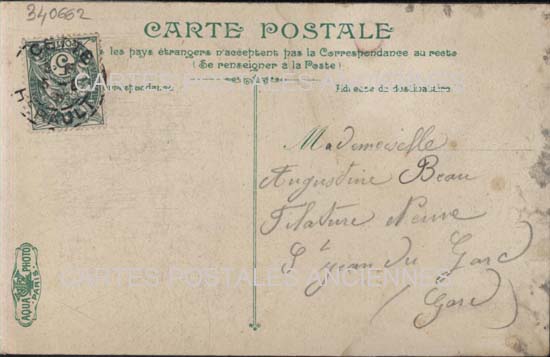 340662
CARTE POSTALE
les pays étrangers n'acceptent pas la Correspondance au recto
(Se renseigner à la Poste)
Adresse du destinataire
CETTE
HERAULT
CARTES POSTALES ANCIENNES
Mademoiselle
Augustine Beau
Filature Neuve
St Jean du Gard
(Gard)
CARTES POSTALES ANCIENNES
AQUA PHOTO
PARIS